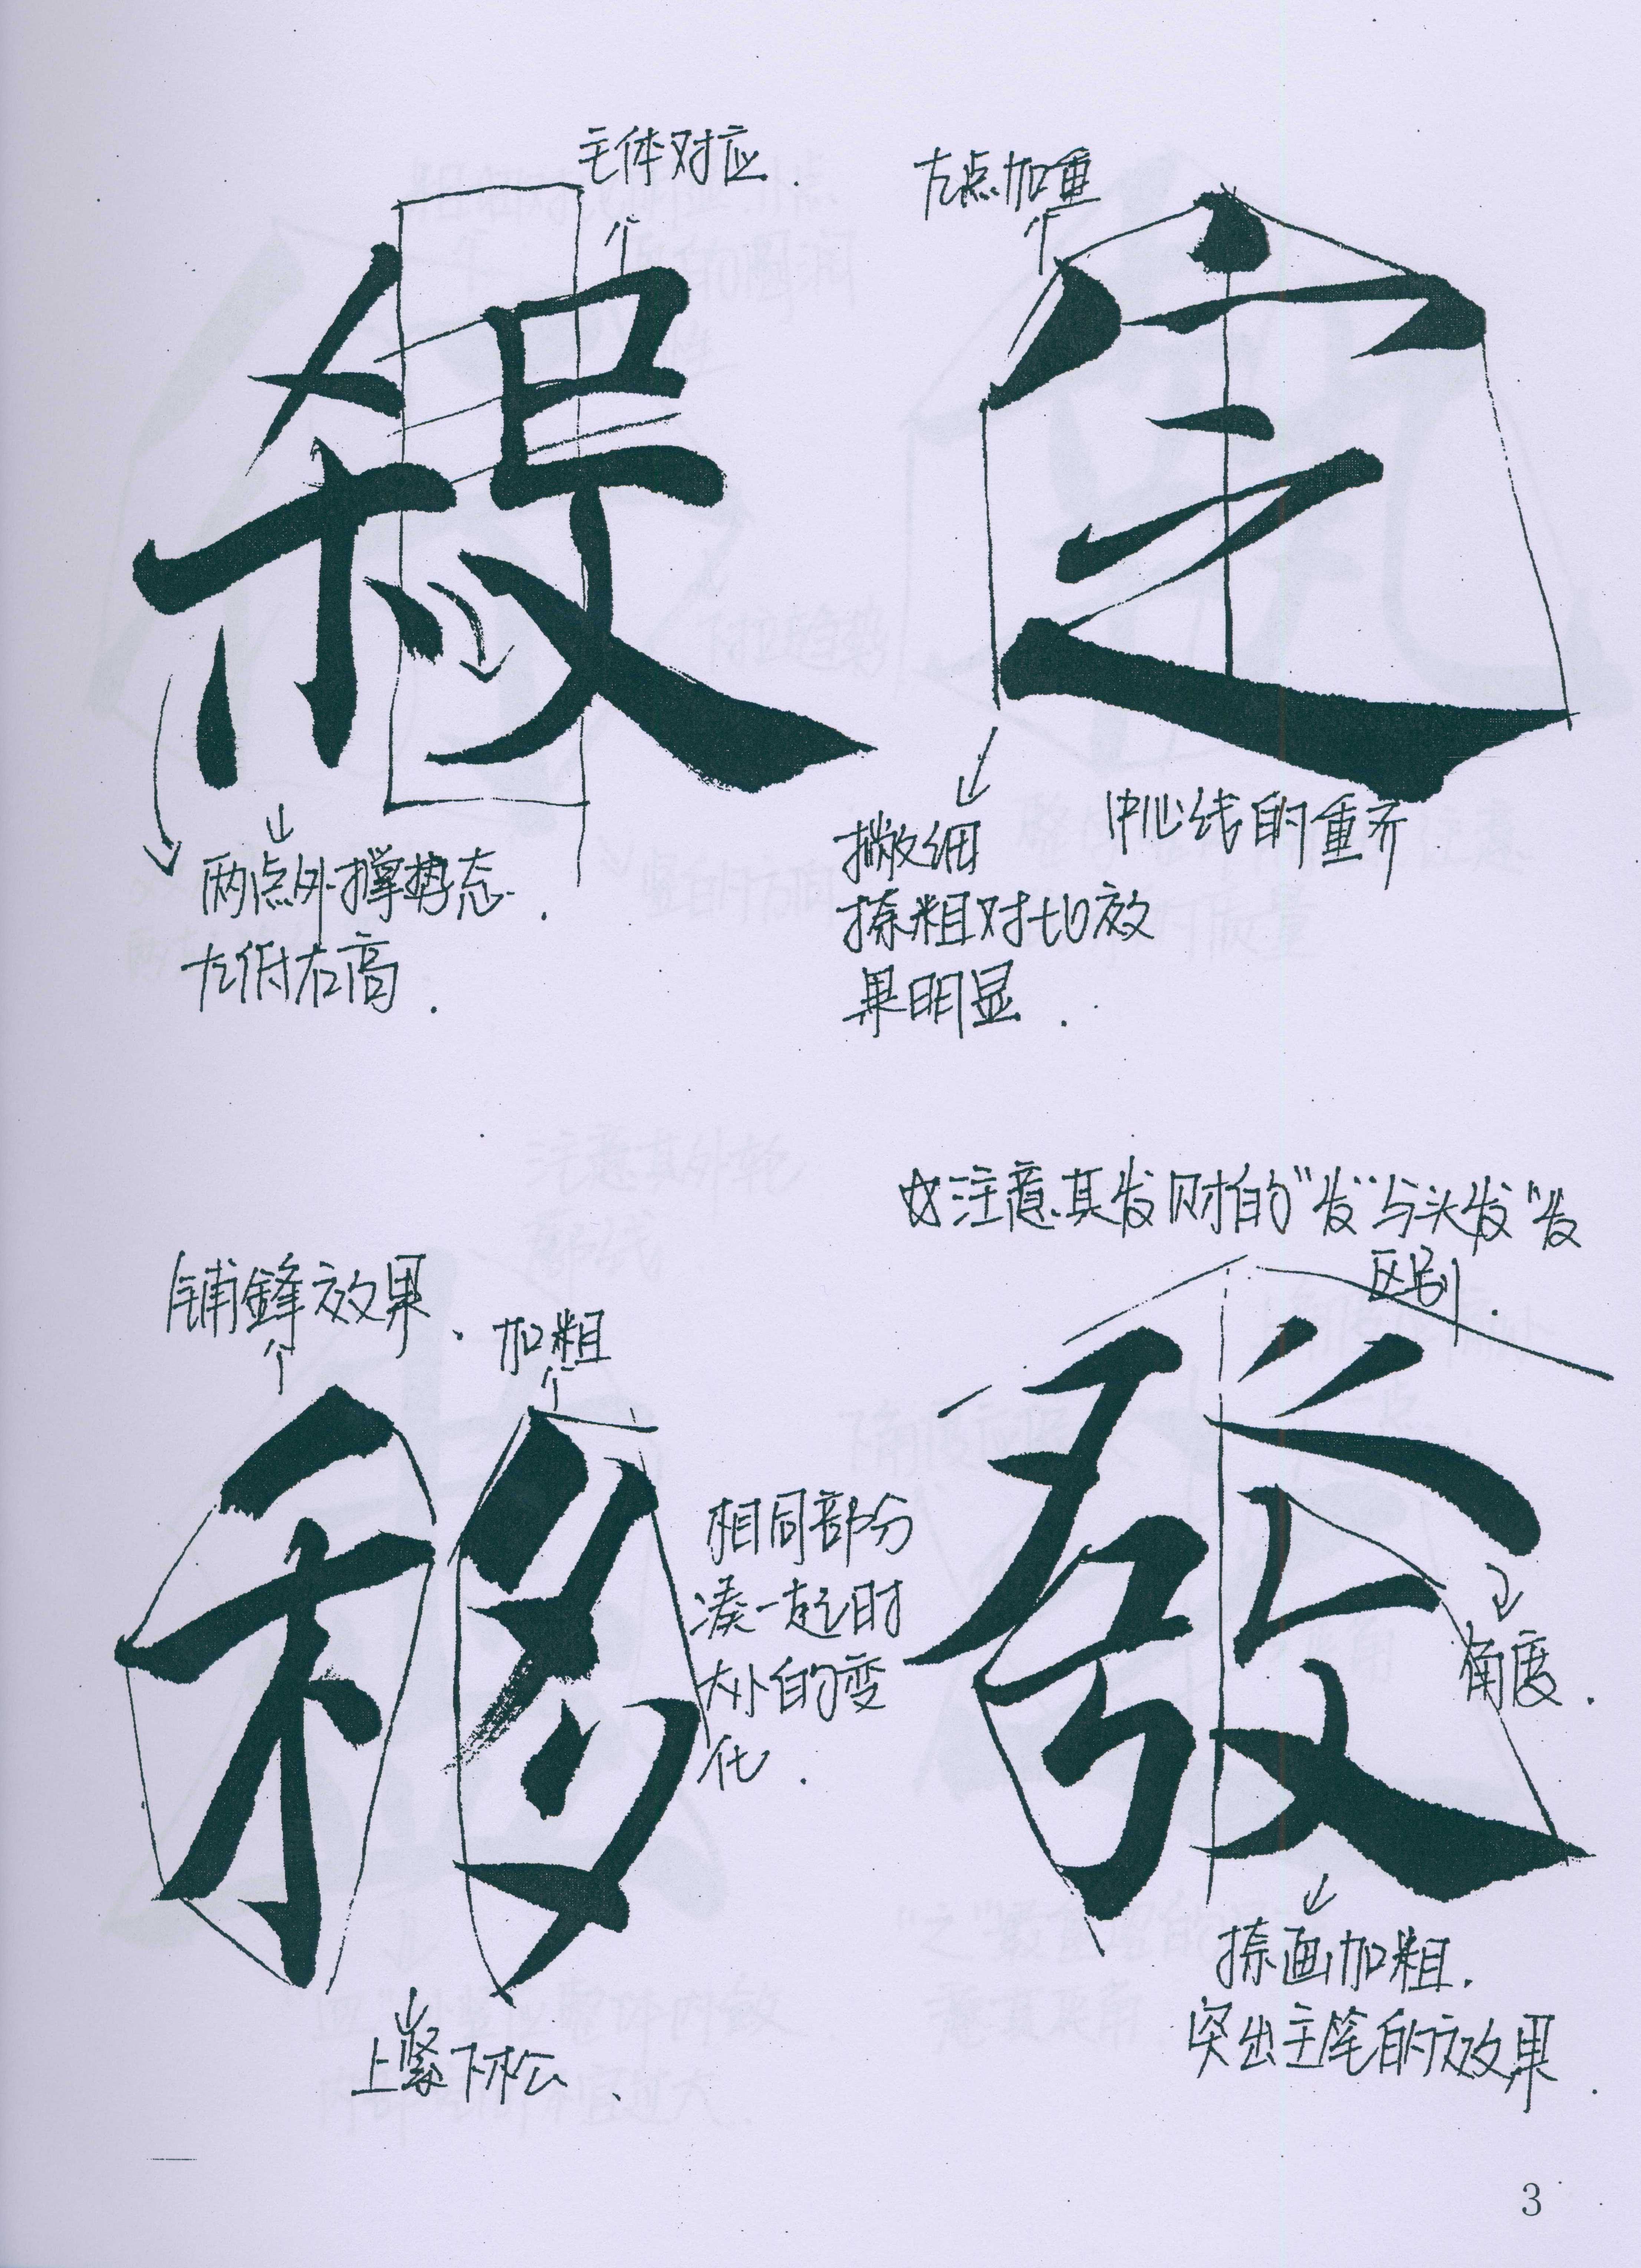 主体对应.
左点加重
殺
定
两点外撑势态.
左低右高.
撇细
捺粗对比效
果明显.
中心线的重齐
☆注意其发财的“发”与头发“发
区别.
铺鋒效果.
加粗
移
發
相同部分
凑一起时
大小的变
化.
角度.
上紧下松.
捺画加粗.
突出主笔的效果.
3